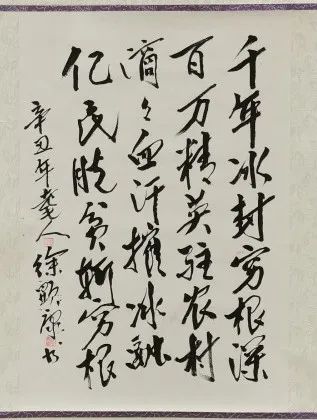 千年冰封穷根深
百万精英驻农村
滴々血汗摧冰融
亿民脱贫斩穷根
辛丑年耄人
徐显康书